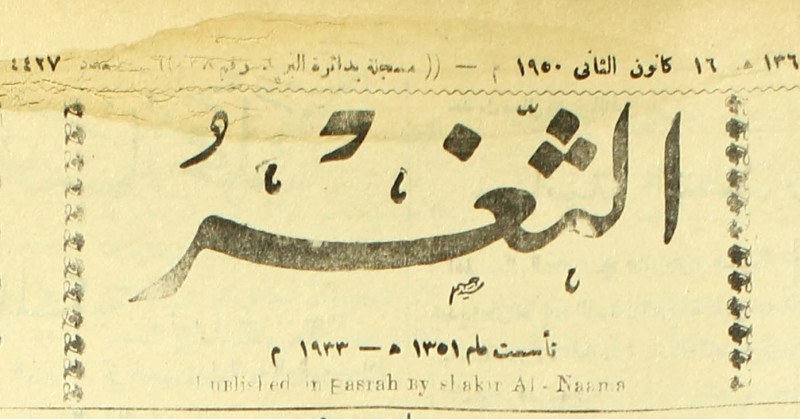 ١٦ كانون الثاني ١٩٥٠ م — (( مسجلة بدائرة ٤٤٢٧
الثغر
تأسست عام ١٣٥١ ه — ١٩٣٣ م
Published in Basrah By shakir Al - Naama